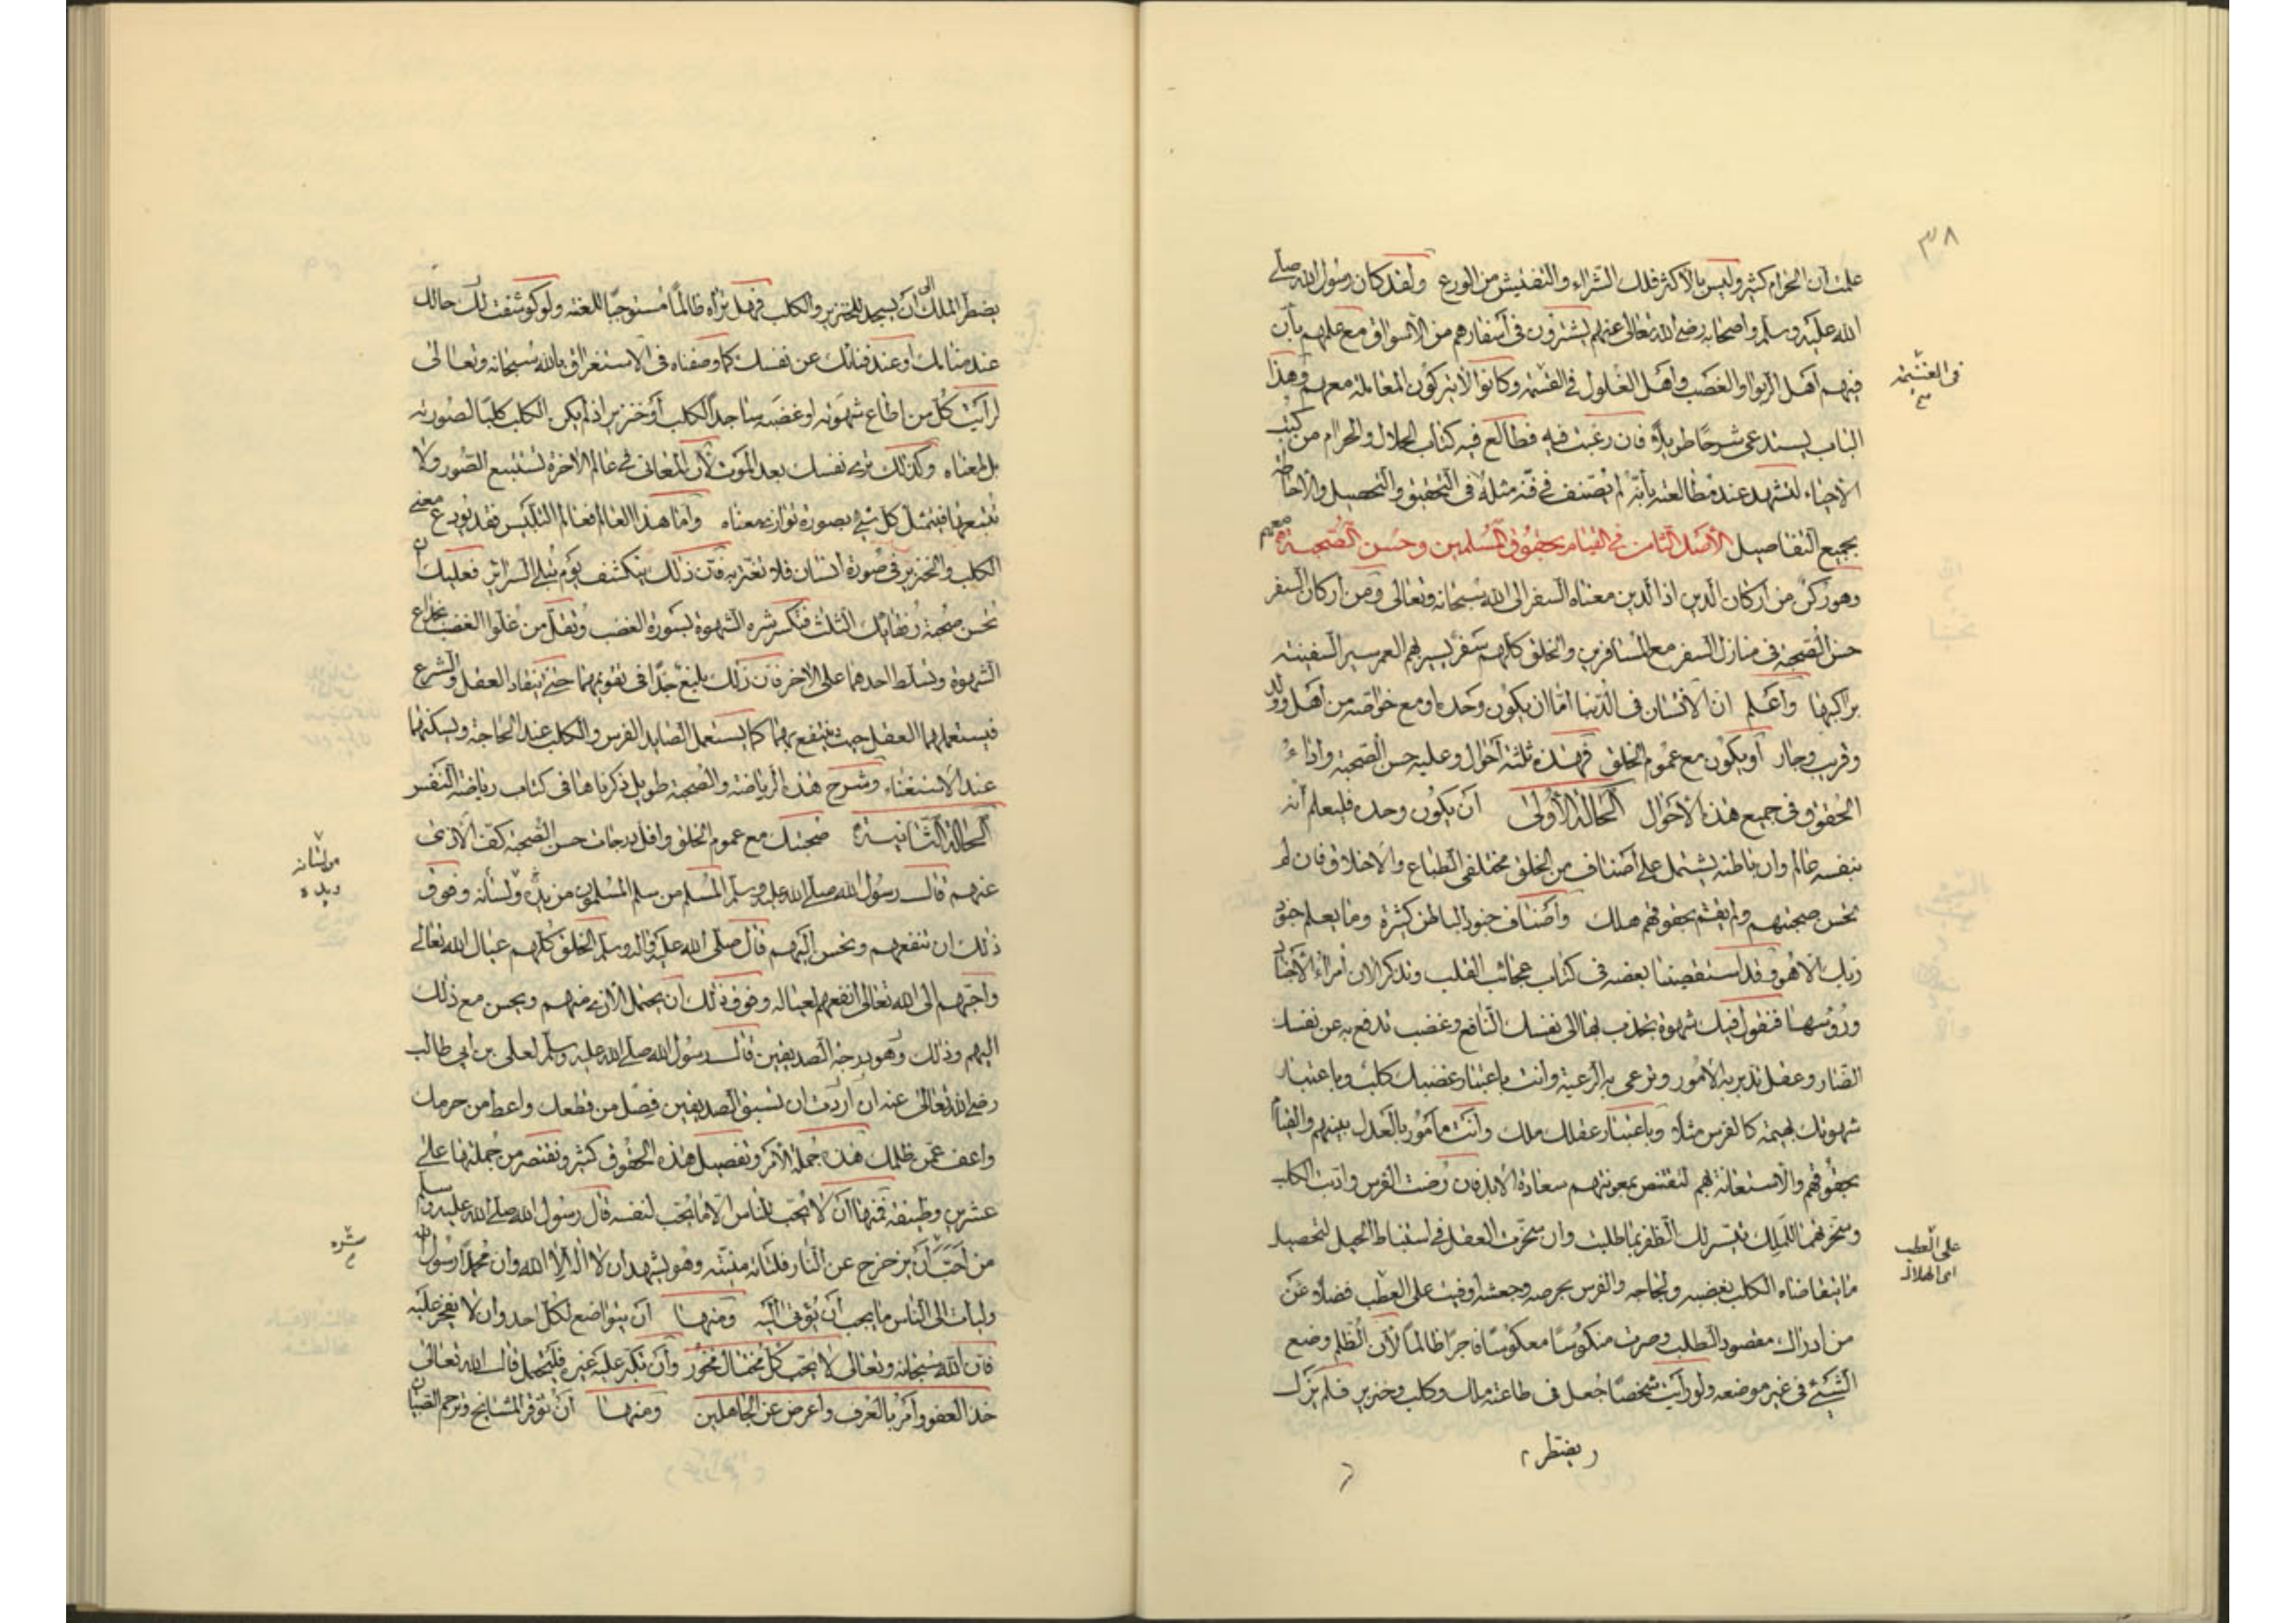 ٣٨
علمت ان الحرام كثير وليس بالاكثر فلك الشراء والتفتيش من الورع ولقد كان رسول الله صلى
الله عليه وسلم واصحابه رضي الله تعالى عنهم يشترون في اسفارهم من الاسواق مع علمهم بأن
فيهم اهل الربوا والغصب واهل الغلول في القسمة وكانوا لا يتركون المعاملة معهم وهذا
في الغنيمة
الباب يستدعى شرحا طويلا فان رغبت فيه فطالع فيه كتاب الحلال والحرام من كتب
الاحياء لتشهد عند مطالعته بأنه لم يصنف في فنه مثله في التحقيق والتحصيل والاحاطة
بجميع التفاصيل الأصل الثامن في القيام بحقوق المسلمين وحسن الصحبة معهم
وهو ركن من اركان الدين اذ الدين معناه السفر الى الله سبحانه وتعالى ومن اركان السفر
حسن الصحبة في منازل السفر مع المسافرين والخلق كلهم سفر يسير بهم العمر سير السفينة
براكبها واعلم ان الانسان في الدنيا اما ان يكون وحده او مع خواصه من اهل وولد
وقريب وجار او يكون مع عموم الخلق فهذه ثلثة احوال وعليه حسن الصحبة واداء
الحقوق في جميع هذه الاحوال الحالة الأولى ان يكون وحده فليعلم أنه
بنفسه عالم وان باطنه يشتمل على اصناف من الخلق مختلفي الطباع والاخلاق فان لم
يحسن صحبتهم ولم يقم بحقوقهم هلك واصناف جنود الباطن كثيرة وما يعلم جنود
ربك الا هو وقد استقصينا بعضه في كتاب عجائب القلب ونذكر الان أمراء الأجناد
ورؤسها فنقول فيك شهوة تجذب بها الى نفسك النافع وغضب تدفع به عن نفسك
الضار وعقل تدبر به الأمور وترعى به الرعية وانت باعتبار غضبك كلب وباعتبار
شهوتك بهيمة كالفرس مثلا وباعتبار عقلك ملك وأنت مأمور بالعدل بينهم والقيام
بحقوقهم والاستعانة بهم لتقتنص بمعونتهم سعادة الابد فان رضت الفرس وادبت الكلب
وسخرتهما للملك تيسر لك الظفر بما طلبت وان سخرت العقل في استنباط الحيل لتحصيل
على العطب
اى الهلاك
ما يتقاضاه الكلب بغضبه ولجاجه والفرس بحرصه وجعشه اوفيت على العطب فضلا عن
من ادراك مقصود الطلب وصرت منكوسا معكوسا فاجرا ظالما لأن الظلم وضع
الشيء في غير موضعه ولو رأيت شخصا جعل في طاعته ملك وكلب وخنزير فلم يزل
يضطر
يضطر الملك الى أن يسجد للخنزير والكلب فهل تراه ظالما مستوجبا للعنة ولو كوشفت لك حالك
عند منامك او عند فنائك عن نفسك كما وصفناه في الاستغراق بالله سبحانه وتعالى
لرأيت كل من اطاع شهوته او غضبه ساجدا لكلب أو خنزير اذ لم يكن الكلب كلبا لصورته
بل لمعناه وكذلك ترى نفسك بعد الموت لأن المعاني في عالم الآخرة تستتبع الصور ولا
تتبعها فيتمثل كل شيء بصورة توازي معناه وأما هذا العالم فعالم التلبيس فقد يودع معنى
الكلب والخنزير في صورة انسان فلا تغتر به فان ذلك ينكشف يوم تبلى السرائر فعليك ان
تحسن صحبة رفقائك الثلث فتكسر شره الشهوة بسورة الغضب وتقلل من غلوا الغضب بخداع
الشهوة وتسلط احدهما على الاخر فان ذلك بليغ جدا في تقويمهما حتى ينقاد العقل والشرع
فيستعملهما العقل حيث ينتفع بهما كما يستعمل الصايد الفرس والكلب عند الحاجة ويسكنهما
عند الاستغناء وشرح هذه الرياضة والصحبة طويل ذكرناها في كتاب رياضة النفس
الحالة الثانية صحبتك مع عموم الخلق واقل درجات حسن الصحبة كف الاذى
من لسانه
ويده
عنهم قال رسول الله صلى الله عليه وسلم المسلم من سلم المسلمون من يده ولسانه وفوق
ذلك ان تنفعهم وتحسن اليهم قال صلى الله عليه واله وسلم الخلق كلهم عيال الله تعالى
واحبهم الى الله تعالى انفعهم لعياله وفوق ذلك ان يحتمل الاذى منهم ويحسن مع ذلك
اليهم وذلك وهو درجة الصديقين قال رسول الله صلى الله عليه وسلم لعلي بن ابي طالب
رضي الله تعالى عنه ان اردت ان تسبق الصديقين فصل من قطعك واعط من حرمك
واعف عمن ظلمك هذه جملة الأمر وتفصيل هذه الحقوق كثير ونقتصر من جملتها على
عشرين وظيفة فمنها أن لا يحب للناس الا ما يحب لنفسه قال رسول الله صلى الله عليه وسلم
من أحب أن يزحزح عن النار فلتاته منيته وهو يشهد ان لا اله الا الله وان محمدا رسول الله
وليأت الى الناس ما يحب أن يؤتى اليه ومنها ان يتواضع لكل احد وان لا يفخر عليه
فان الله سبحانه وتعالى لا يحب كل مختال فخور وأن تكبر عليه غيره فليتحمل قال الله تعالى
خذ العفو وأمر بالعرف وأعرض عن الجاهلين ومنها أن توقر المشايخ وترحم الصبيان